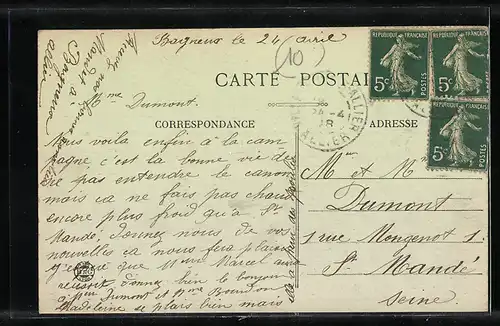 Bagneux le 24 avril
(10)
CARTE POSTALE
Mme Dumont.
CORRESPONDANCE
ADRESSE
Nous voila enfin à la cam
pagne c'est la bonne vie de
ne pas entendre le canon
mais ca ne fais pas chaud
encore plus froid qu'a St
Mandé donnez nous de vos
nouvelles ca nous fera plaisir
que Mme Marcel
bien le bonjour
a Mme Dumont et Mme Bourdon
Madeleine se plais bien mais
Mr et Mme
Dumont
1 rue Mongenot 1.
St Mandé
Seine.
RÉPUBLIQUE FRANÇAISE
5c
POSTES
RÉPUBLIQUE FRANÇAISE
5c
POSTES
RÉPUBLIQUE FRANÇAISE
5c
POSTES
ALLIER